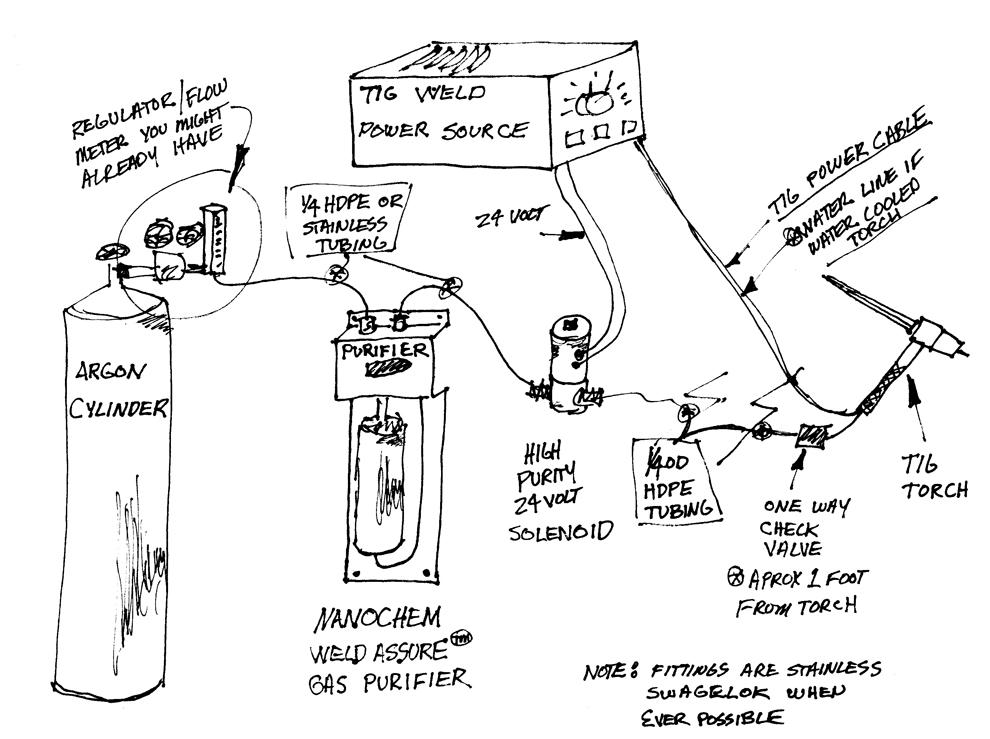 REGULATOR/FLOW
METER YOU MIGHT
ALREADY HAVE
TIG WELD
POWER SOURCE
1/4 HDPE OR
STAINLESS
TUBING
24 VOLT
TIG POWER CABLE
WATER LINE IF
WATER COOLED
TORCH
ARGON
CYLINDER
PURIFIER
HIGH
PURITY
24 VOLT
SOLENOID
1/4 OD
HDPE
TUBING
ONE WAY
CHECK
VALVE
APROX 1 FOOT
FROM TORCH
TIG
TORCH
NANOCHEM
WELD ASSURE TM
GAS PURIFIER
NOTE: FITTINGS ARE STAINLESS
SWAGELOK WHEN
EVER POSSIBLE